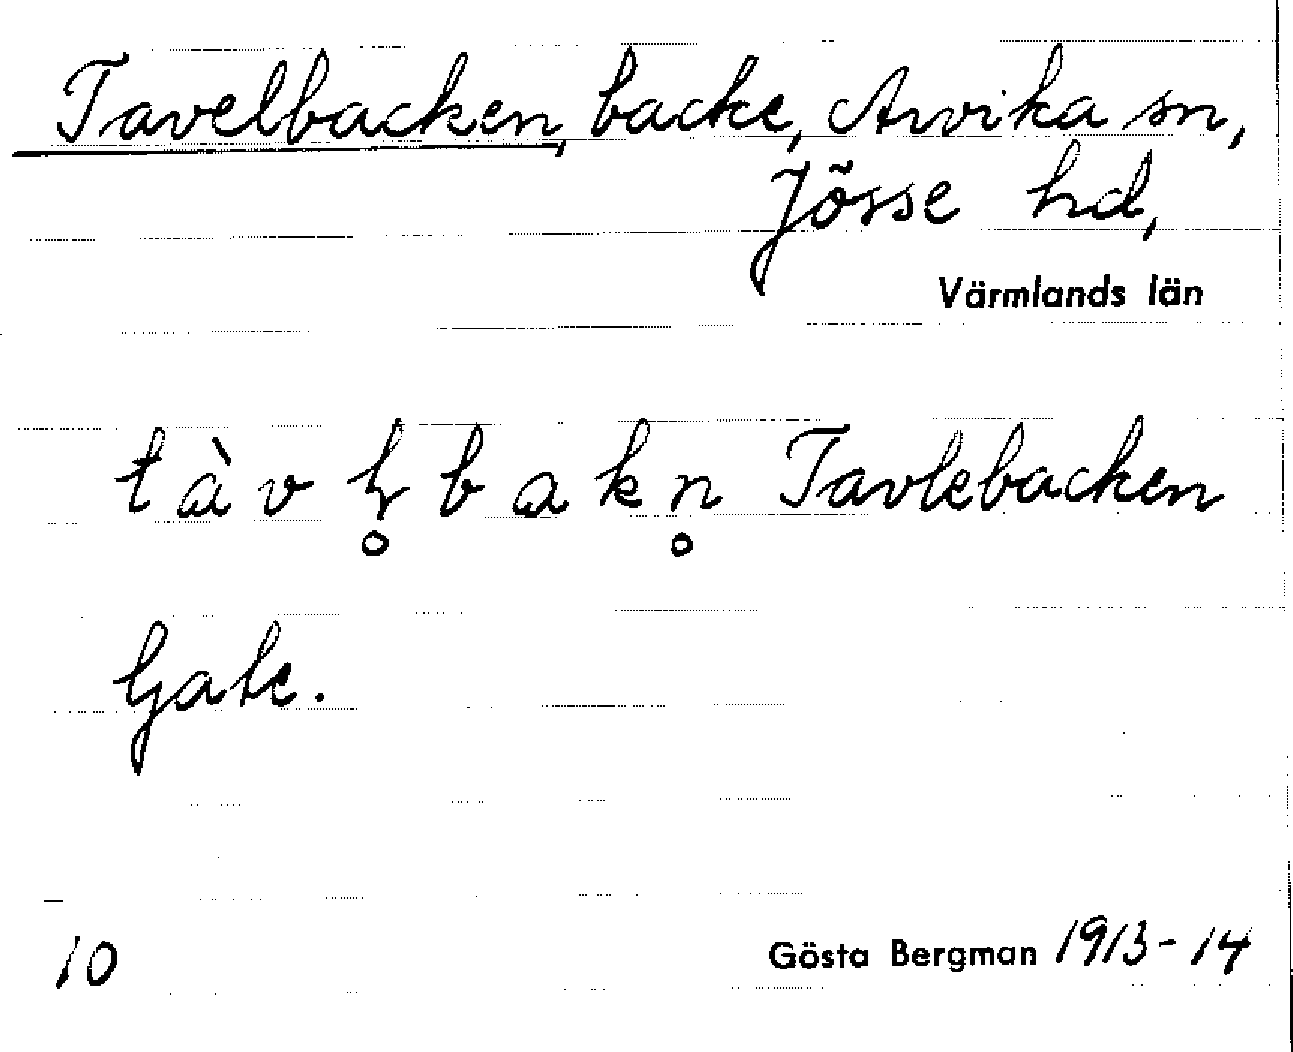 Tavelbacken, backe, Arvika sn,
Jösse hd,
Värmlands län
tàvl̥bakn̥ Tavlebacken
Gate.
10 Gösta Bergman 1913-14